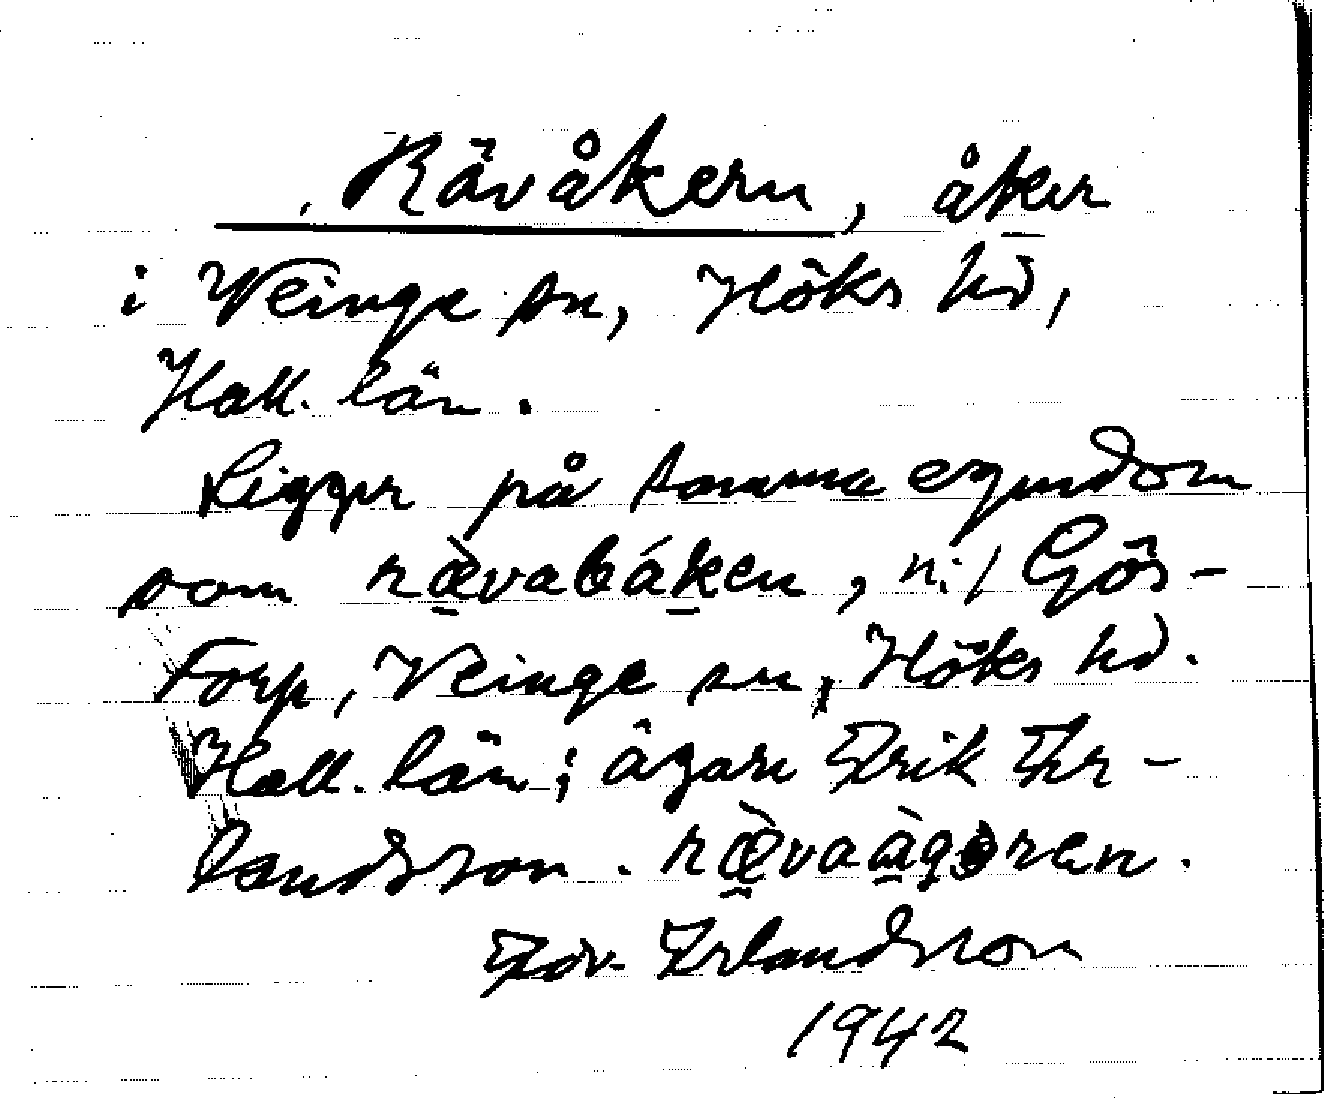 Rävåkern, åker
i Veinge sn, Höks hd,
Hall. län.
Ligger på samma egendom
som ræ̀vabáken, n:1 Gös-
torp, Veinge sn, Höks hd.
Hall. län; ägare Erik Er-
landsson. ræ̀vaàgeren.
Edv. Erlandsson
1942